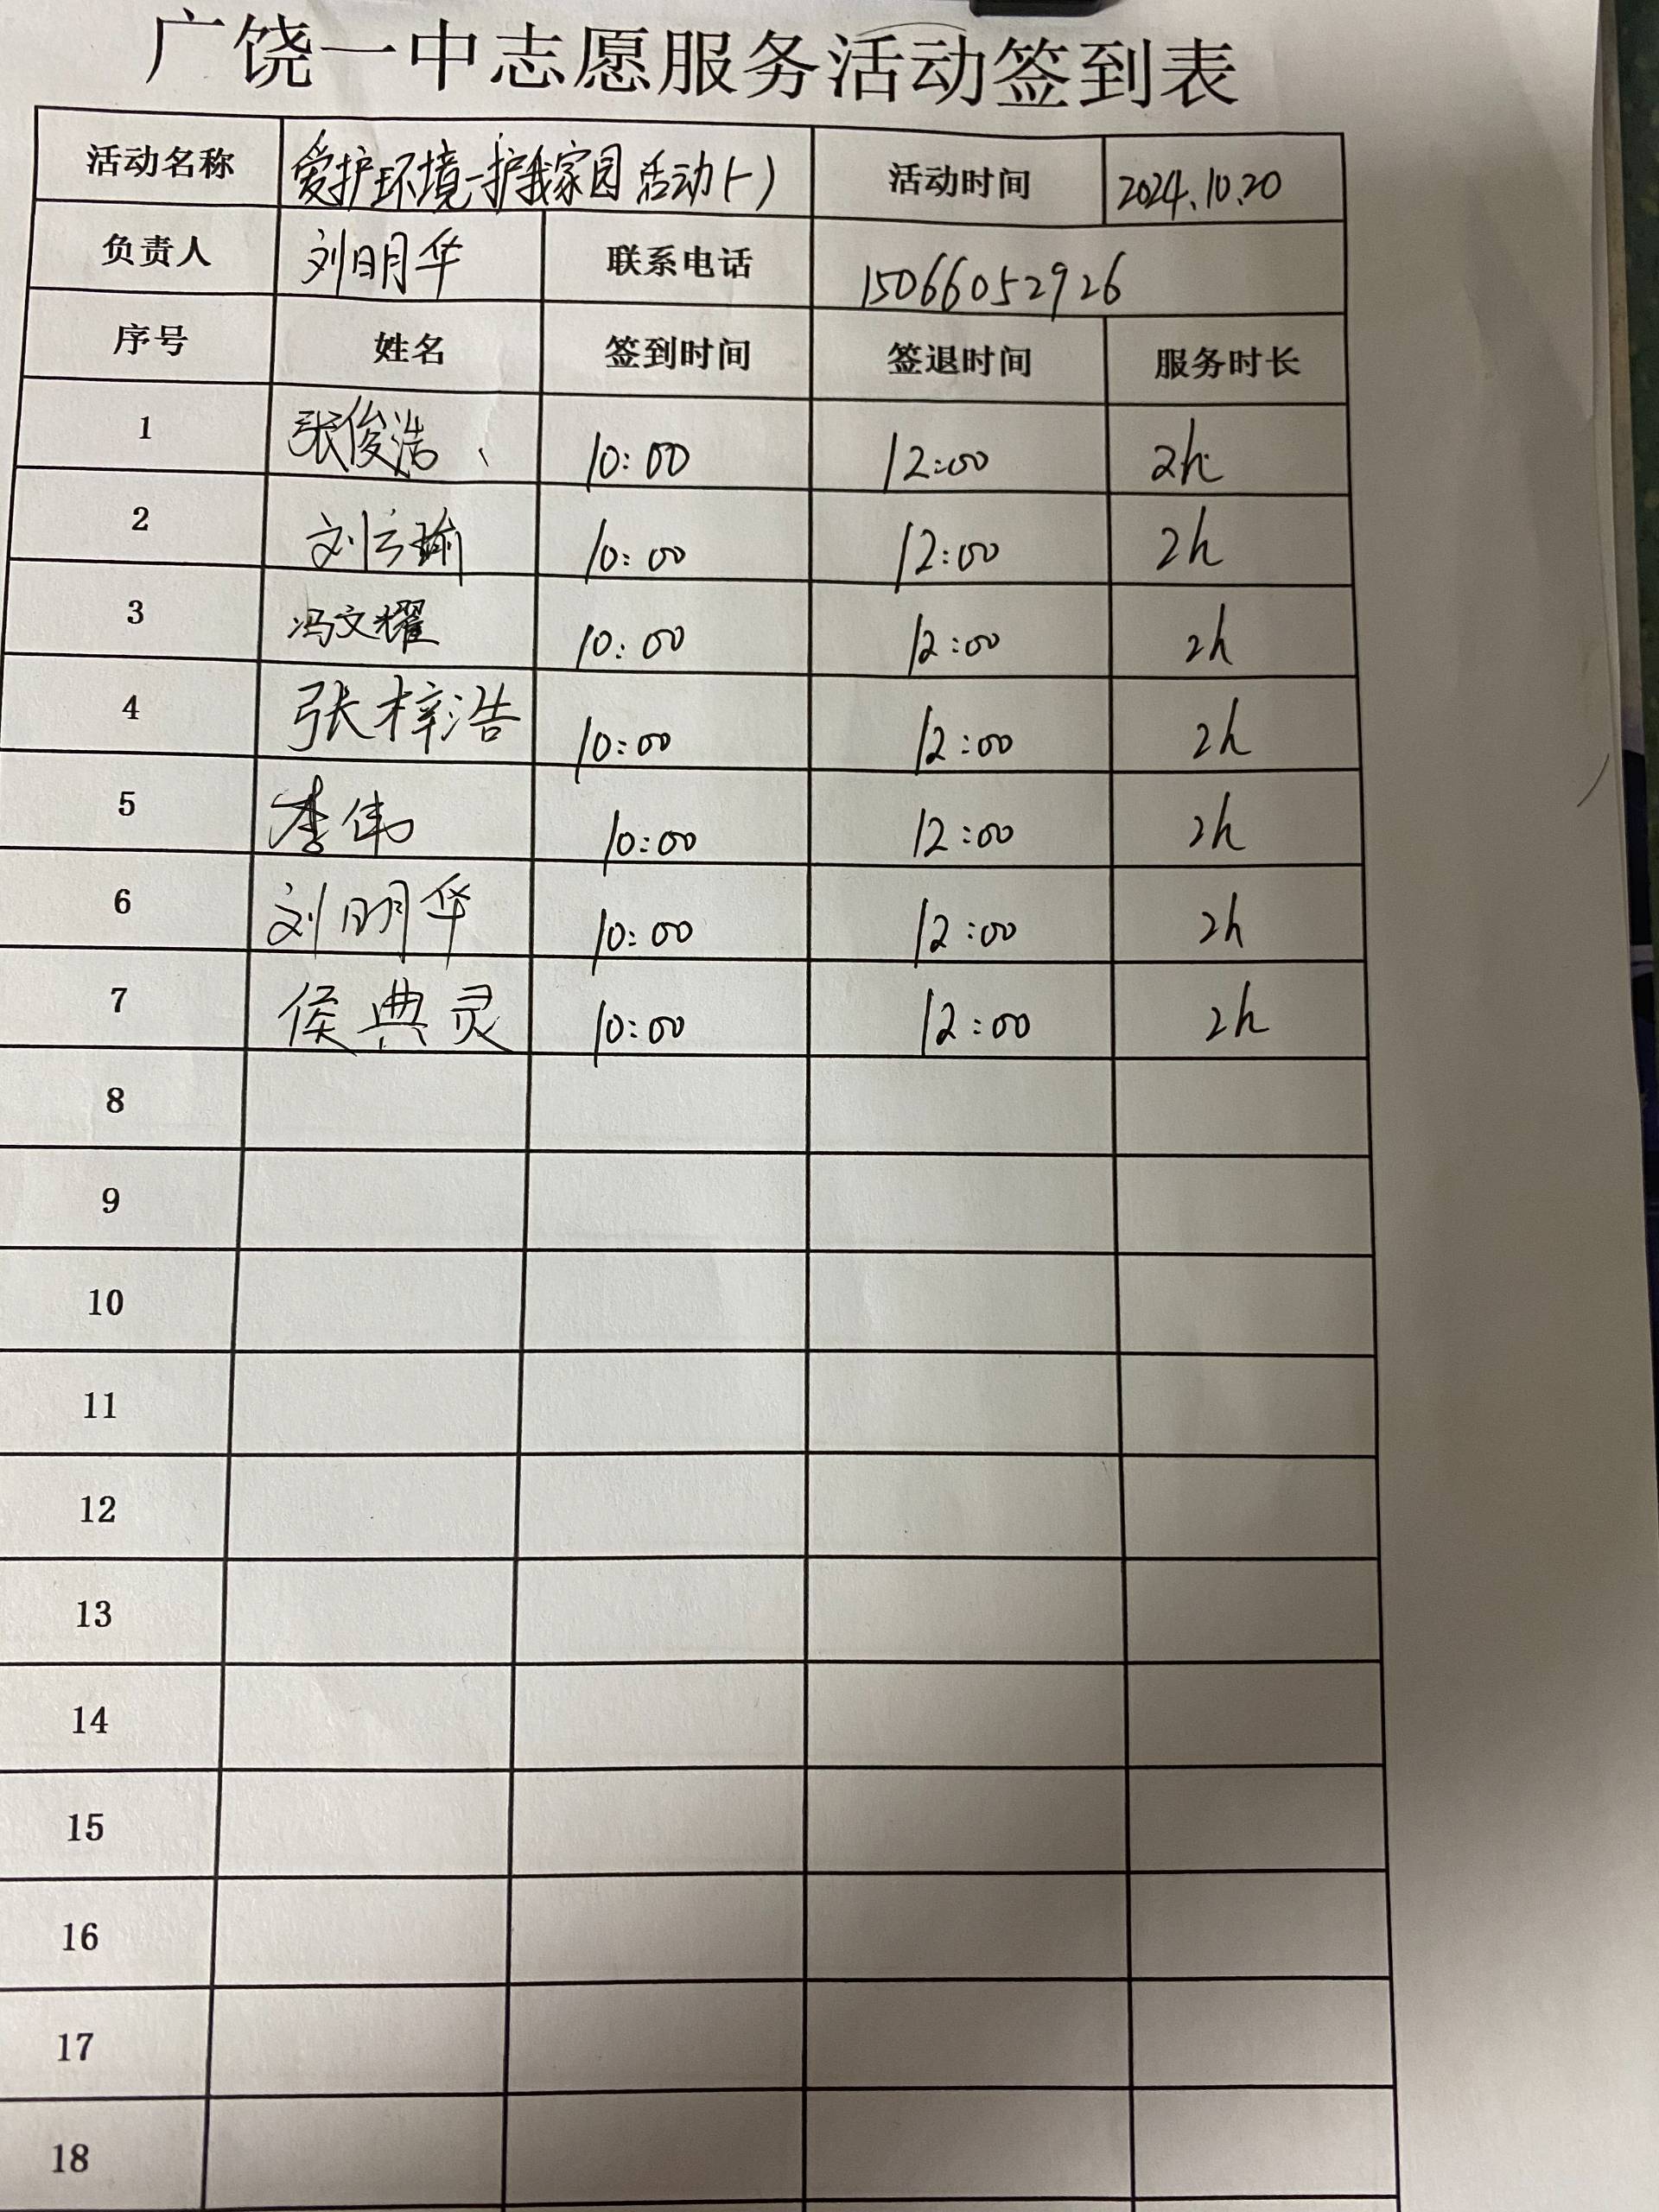 广饶一中志愿服务活动签到表
活动名称 爱护环境-护我家园活动(一) 活动时间 2024.10.20
负责人 刘明华 联系电话 15066052926
序号 姓名 签到时间 签退时间 服务时长
1 张俊浩 10:00 12:00 2h
2 刘云瑜 10:00 12:00 2h
3 冯文耀 10:00 12:00 2h
4 张梓浩 10:00 12:00 2h
5 李伟 10:00 12:00 2h
6 刘明华 10:00 12:00 2h
7 侯典灵 10:00 12:00 2h
8
9
10
11
12
13
14
15
16
17
18